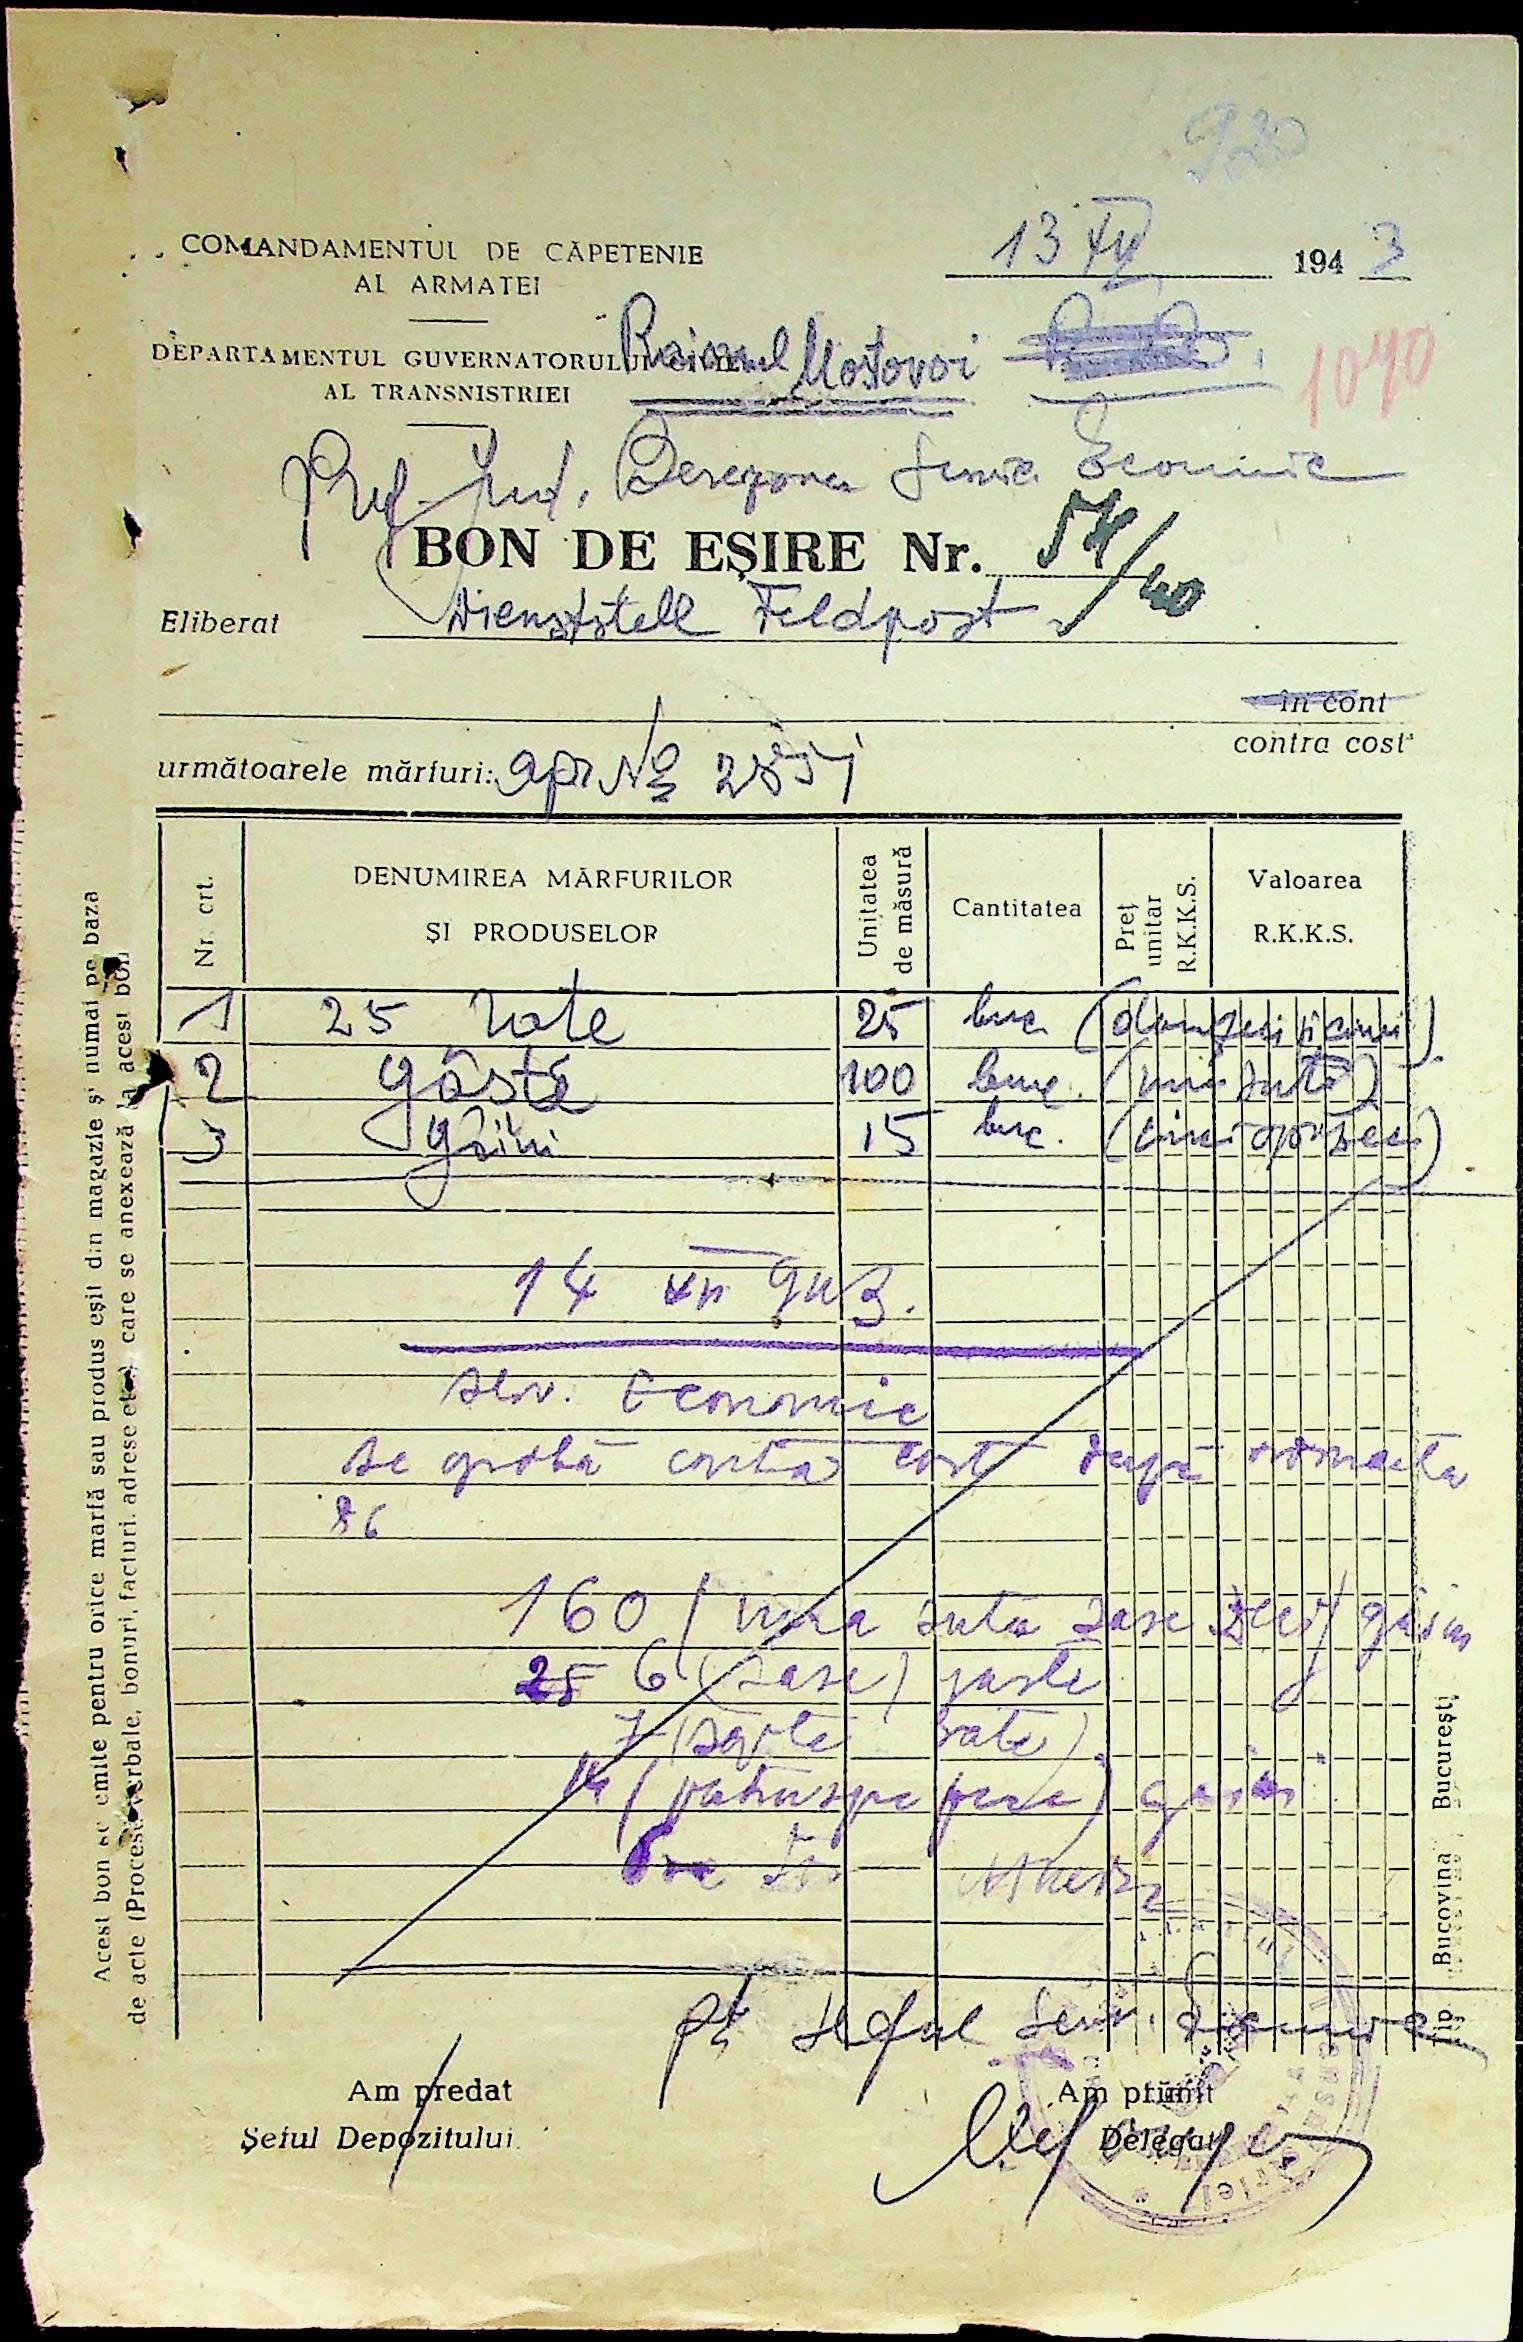 920
COMANDAMENTUL DE CĂPETENIE
AL ARMATEI
13 XII 1943
DEPARTAMENTUL GUVERNATORULUI
AL TRANSNISTRIEI
Raionul Mostovoi
1070
Pref. Jud. Berezovca Servic. Economic
BON DE EȘIRE Nr. 54/40
Eliberat Dienststell Feldpost
în cont
contra cost
următoarele mărfuri: apr №
Nr. crt.
DENUMIREA MĂRFURILOR
ȘI PRODUSELOR
Unitatea
de măsură
Cantitatea
Preț
unitar
R.K.K.S.
Valoarea
R.K.K.S.
1 25 rate 25 buc. (douăzeci și cinci)
2 gâște 100 buc. (una sută)
3 găini 15 buc. (cinci spre zece)
14 XII 943.
serv. Economic
se probă contra cost după normativ
86
160 (una sută șase zeci) găini
25 6 (șase) gaste
7 (șapte rate)
14 (patruspe zece)
pt. Șeful Serv. Economic
Am predat
Șeful Depozitului
Am primit
Delegat
Acest bon se emite pentru orice marfă sau produs eșit din magazie și numai pe baza
de acte (Procese verbale, bonuri, facturi, adrese etc.) care se anexează la acest bon
Tip Bucovina București